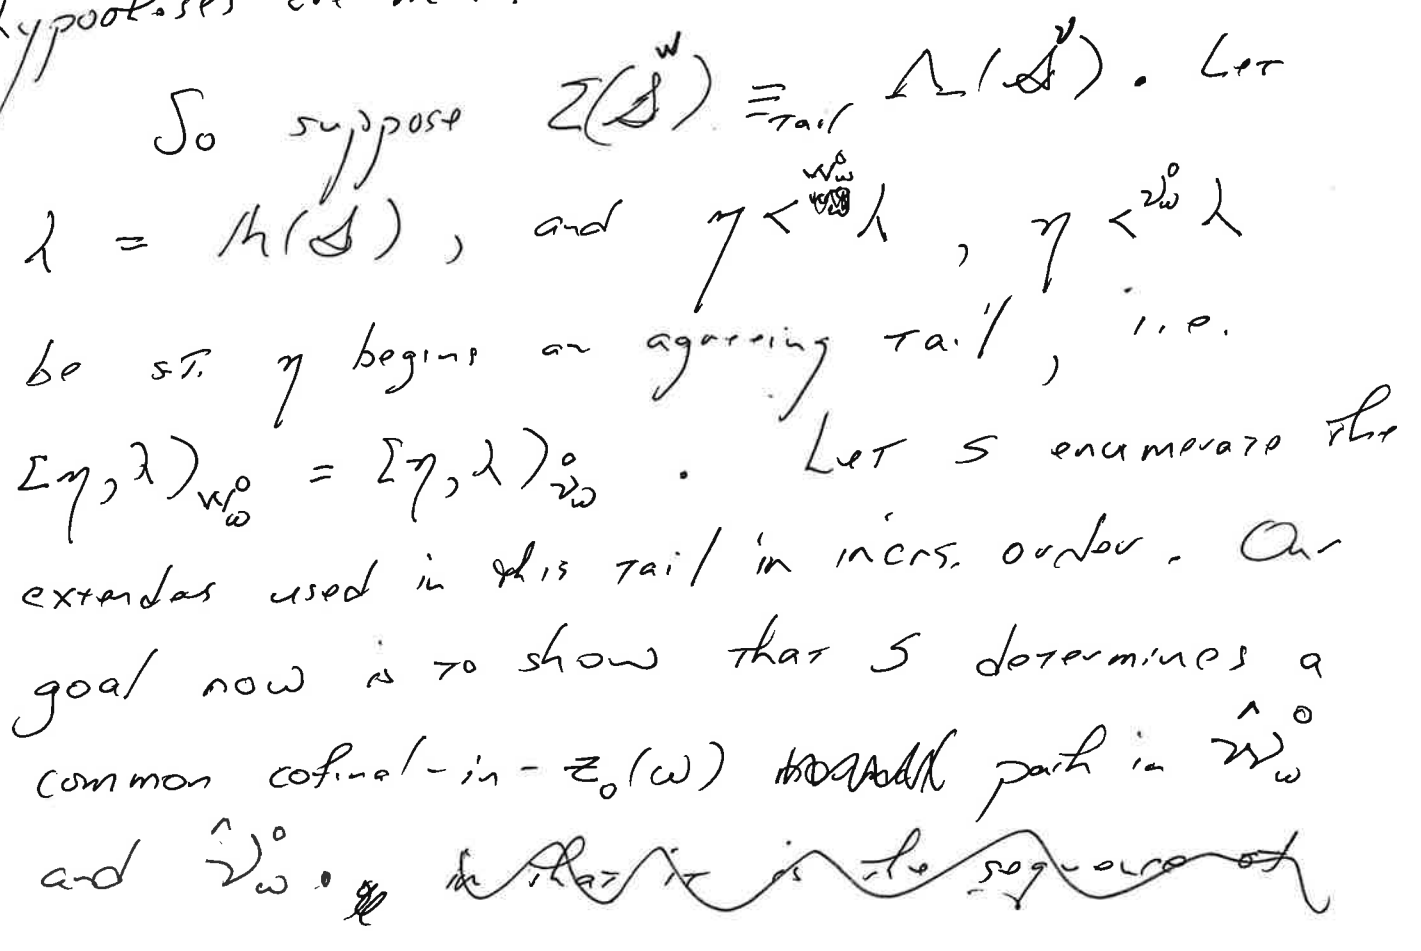 hypotheses
So suppose Σ(𝒮^w) ≡_Tail Λ(𝒮^ν). Let
λ = lh(𝒮), and η <^{W_ω^0} λ, η <^{ν_ω^0} λ
be st. η begins an agreeing tail, i.e.
[η, λ)_{W_ω^0} = [η, λ)_{ν_ω^0}. Let S enumerate the
extenders used in this tail in incrs. order. Our
goal now is to show that S determines a
common cofinal-in-z_0(ω) path in Ŵ_ω^0
and ν̂_ω^0. in that it is the sequence of